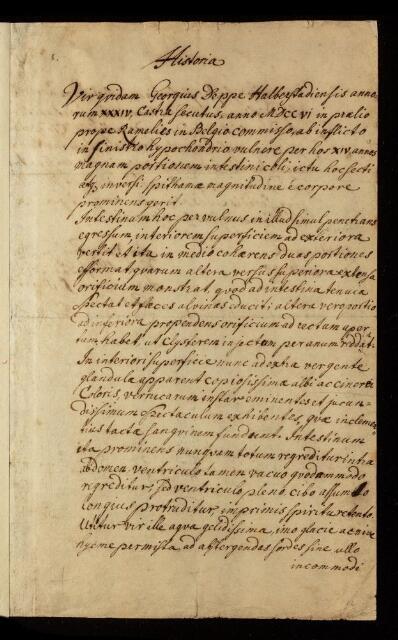 Historia
Vir quidam Georgius Deppe Halberstadiensis anno-
rum XXXIV, Castra secutus, anno MDCCVI in prælio
prope Ramelies in Belgio commisso, ab inflicto
in sinistro hypochondrio vulnere per hos XIV, annos
magnam portionem intestini coli, ictu hoc secti
atq inversi, spithamæ magnitudine e corpore
prominens gerit.
Intestinum hoc per vulnus in illud simul penetrans
egressum, interiorem superficiem ad exteriora
vertit et ita in medio cohærens duas portiones
efformat, quarum altera versus superiora extensa
orificium monstrat, quod ad intestina tenuia
spectat et fæces alvinas educit; altera vero portio
ad inferiora propendens orificium ad rectum aper-
tum habet, ut Clysterem injectum per anum reddit:
In interiori superficie nunc ad extra vergente
glandulæ apparent copiosissimæ albi ac cinerei
Coloris, verrucarum instar eminentes et jucun-
dissimum spectaculum exhibentes, quæ inclemen-
tius tactæ sanguinem fundunt. Intestinum
ita prominens nunquam totum regreditur intra
abdomen, ventriculo tamen vacuo quodammodo
regreditur, sed ventriculo pleno cibo assumto
longius protruditur, imprimis spiritu retento.
Utitur vir ille aqva gelidissima, imo glacie ac nive
hyeme permista ad abstergendas sordes sine ullo
incommodi